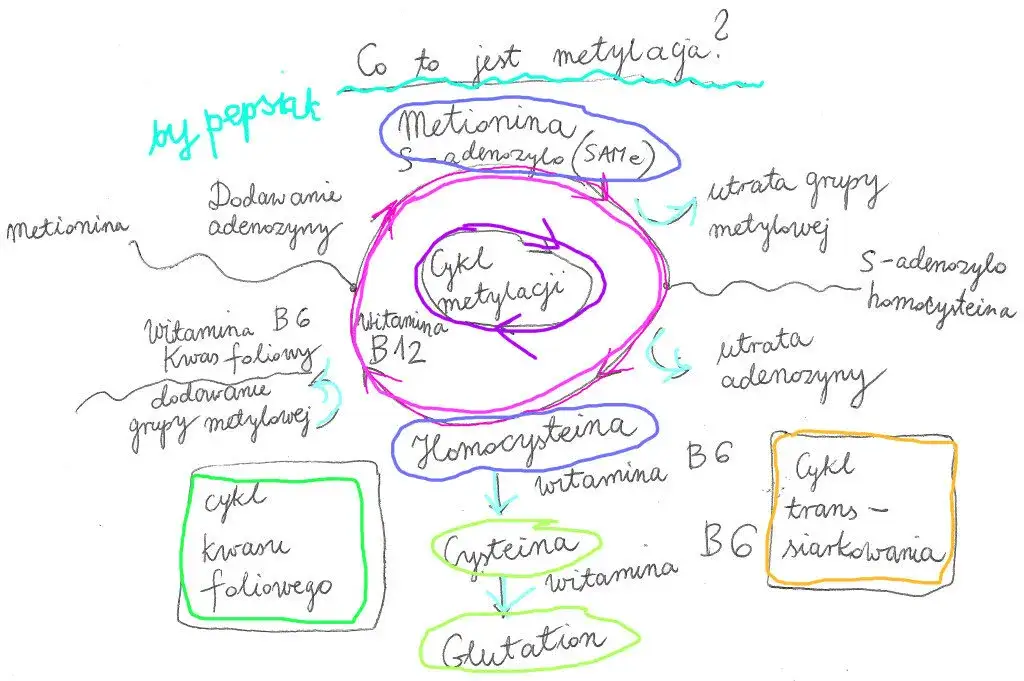 Co to jest metylacja?
by pepsiak
Metionina
S-adenozylo (SAMe)
Dodawanie
adenozyny
metionina
utrata grupy
metylowej
Cykl
metylacji
S-adenozylo
homocysteina
Witamina B6
Kwas foliowy
witamina
B12
dodowanie
grupy metylowej
utrata
adenozyny
Homocysteina
witamina B6
Cysteina
witamina B6
Glutation
cykl
kwasu
foliowego
Cykl
trans-
siarkowania